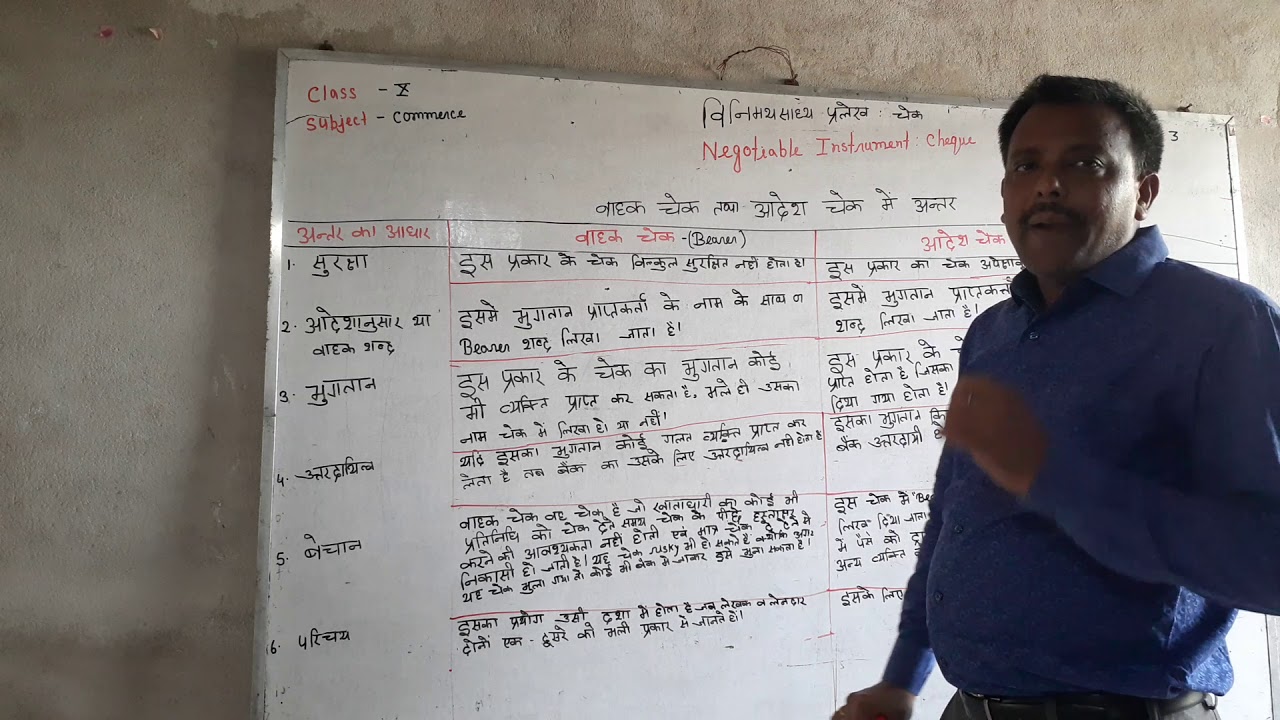 Class - X
Subject - Commerce
विनिमयसाध्य प्रलेख : चेक
Negotiable Instrument : Cheque
3
वाहक चेक तथा आदेश चेक में अन्तर
अन्तर का आधार
वाहक चेक - (Bearer)
आदेश चेक
1. सुरक्षा
इस प्रकार के चेक बिल्कुल सुरक्षित नहीं होता है।
इस प्रकार का चेक
2. आदेशानुसार या
वाहक शब्द
इसमें भुगतान प्राप्तकर्ता के नाम के साथ
Bearer शब्द लिखा जाता है।
इसमें भुगतान प्राप्तकर्ता
शब्द लिखा जाता है।
3. भुगतान
इस प्रकार के चेक का भुगतान कोई
भी व्यक्ति प्राप्त कर सकता है, भले ही उसका
नाम चेक में लिखा हो या नहीं।
इस प्रकार के
प्राप्त होता है जिसका
दिया गया होता है।
4. उत्तरदायित्व
यदि इसका भुगतान कोई गलत व्यक्ति प्राप्त कर
लेता है तब बैंक का उसके लिए उत्तरदायित्व नहीं होता है
इसका भुगतान
बैंक उत्तरदायी
5. बेचान
वाहक चेक वह चेक है जो खाताधारी का कोई भी
प्रतिनिधि को चेक देते समय चेक के पीछे हस्ताक्षर
करने की आवश्यकता नहीं होती एवं मात्र चेक दे देने से
निकासी हो जाती है। यह चेक risky भी हो सकते हैं क्योंकि अगर
यह चेक गया तो कोई भी बैंक में जाकर इसे भुना सकता है।
इस चेक में
लिख दिया जाता
में पैसे को
अन्य व्यक्ति
6. परिचय
इसका प्रयोग उसी दशा में होता है जब लेखक व लेनदार
दोनों एक-दूसरे को भली प्रकार से जानते हों।
इसके लिए